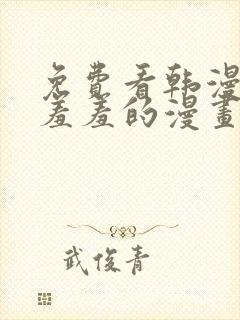 免費看韩漫
羞羞的漫畫
武俊青